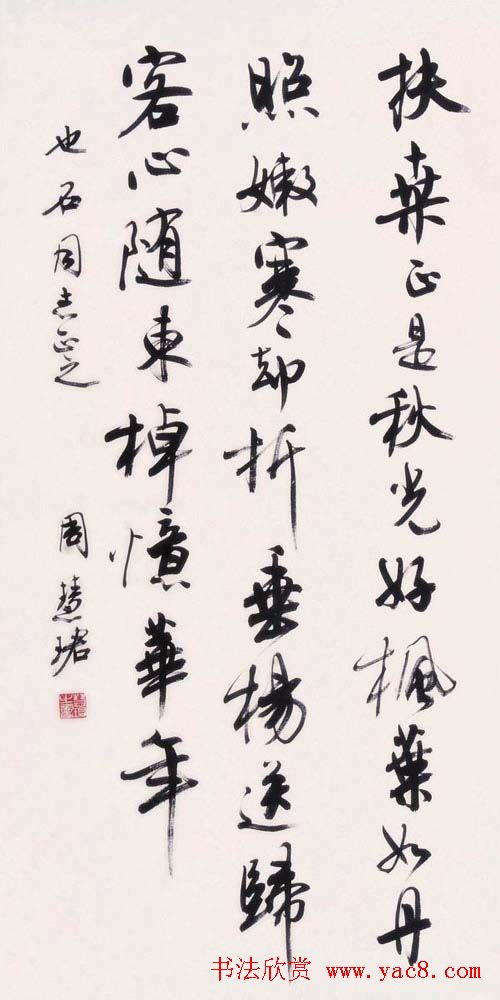 扶桑正是秋光好楓葉如丹
照嫩寒却折垂楊送歸
客心随東棹憶華年
也石同志正之 周慧珺
书法欣赏 www.yac8.com